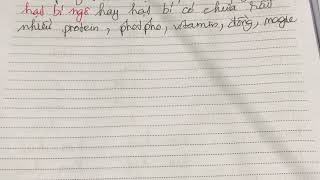 hạt bí ngô hay hạt bí có chứa rất
nhiều protein, phốt pho, vitamin, đồng, magie